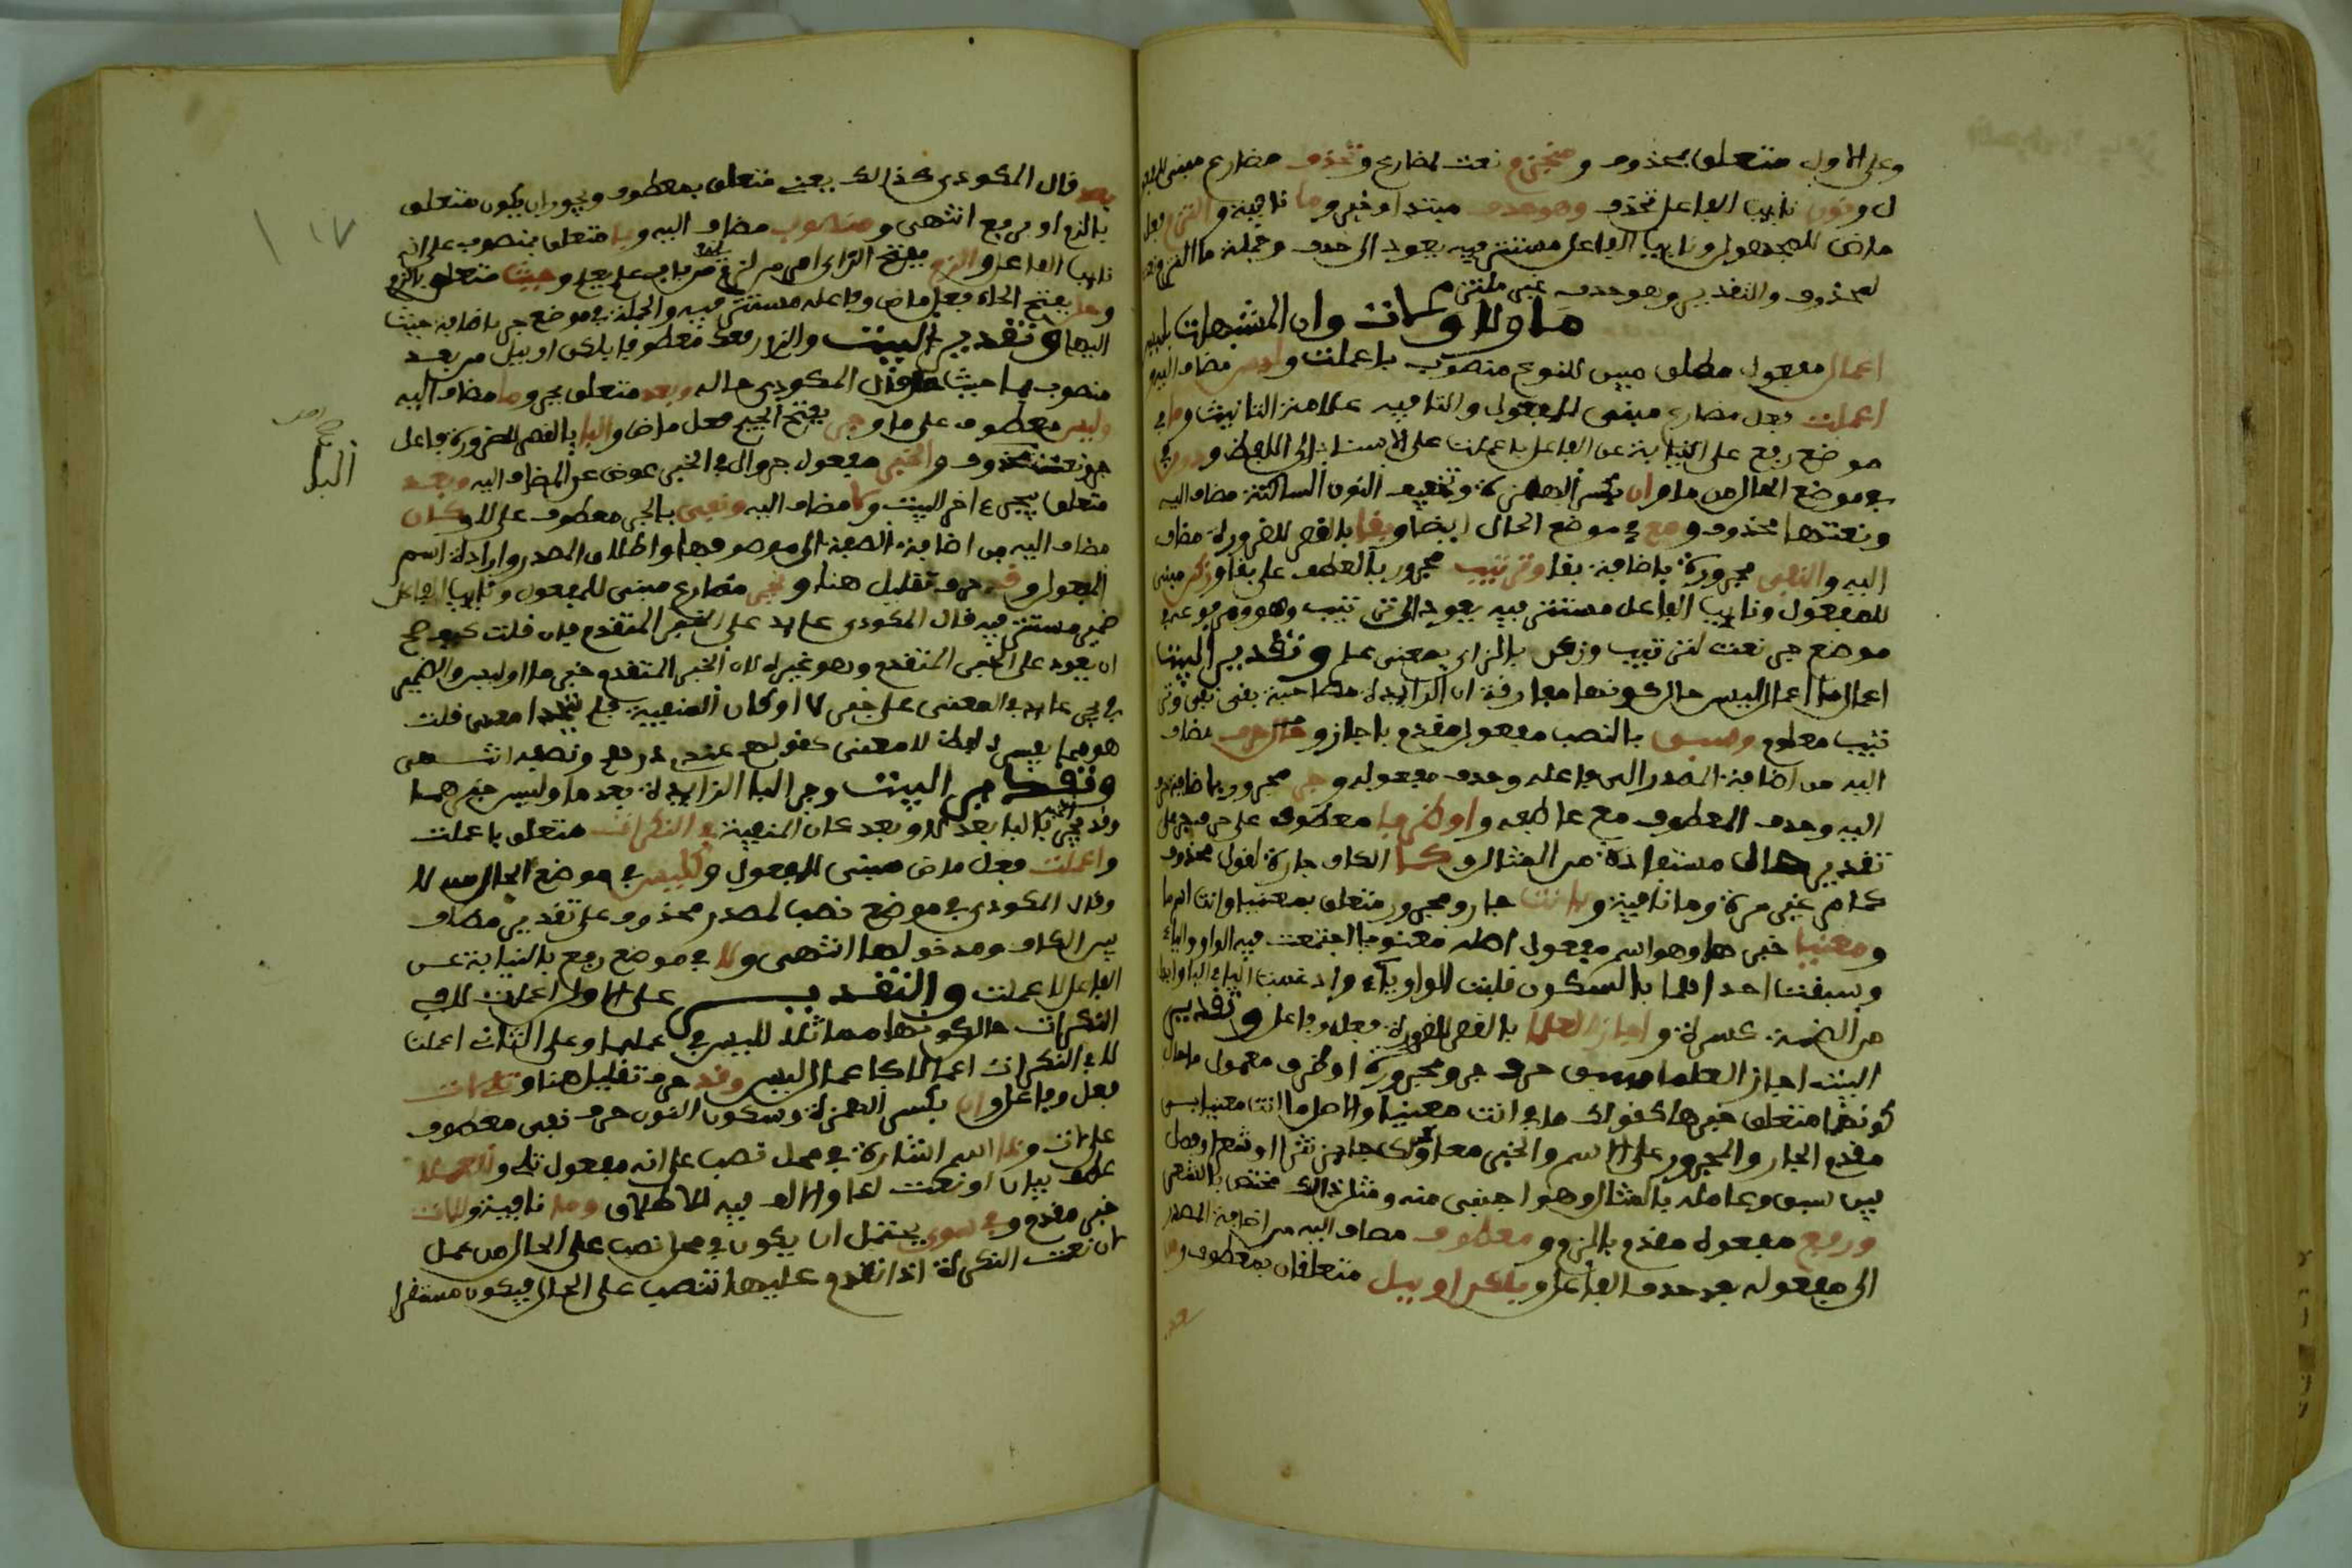 وعلى الاول متعلق بمحذوف ومنجزم نعت لمضارع وتحذف مضارع مبني للمفعو
ل ونون نايب الفاعل تحذف وهو حذف مبتدا وخبر وما نافية والتزم فعل
ماض للمجهول ونايب الفاعل مستتر فيه يعود الى حذف وجملة ما التزم نعت
لمحذوف والتقدير وهو حذف غير ملتزم
ما ولا ولات وان المشبهات بليس
اعمال مفعول مطلق مبين للنوع منصوب باعملت وليس مضاف اليه و
اعملت فعل ماض مبني للمفعول والتا فيه علامة التانيث وما في
موضع رفع على النيابة عن الفاعل باعملت على الاسناد الى اللفظ ودون
في موضع الحال من ما وان بكسر الهمزة وتخفيف النون الساكنة مضاف اليه
ونعتها محذوف ومع في موضع الحال ايضا وبقا بالقصر للضرورة مضاف
اليه والنفي مجرورة باضافة بقا وترتيب مجرور بالعطف على بقا وزكن مبني
للمفعول ونايب الفاعل مستتر فيه يعود الى ترتيب وهو ومرفوعه في
موضع جر نعت لترتيب وزكن بالزاي بمعنى علم وتقدير البيت
اعمال ما اعمال ليس حال كونها مفارقة ان الزايدة مصاحبة بقى نفي وتر
تيب معلوم وسبق بالنصب مفعول مقدم باجاز وحرف مضاف
اليه من اضافة المصدر الى فاعله وحذف مفعوله وجر مجرور باضافة حرف
اليه وحذف المعطوف مع عاطفه او ظرف معطوف على حرف جر على
تقدير حال مستفادة من المثال وكما الكاف جارة لقول محذوف
كما مر غير مرة وما نافية وبي انت جار ومجرور متعلق بمعنيا وانت اسم ما
ومعنيا خبر ها وهو اسم مفعول اصله معنويا اجتمعت فيه الواو والياء
وسبقت احداهما بالسكون قلبت الواو ياء وادغمت اليا في اليا وابدل
من الضمة كسرة واجاز العلما بالقصر للضرورة فعل وفاعل وتقدير
البيت اجاز العلما سبق حرف جر ومجروره او ظرف معمول ما حال
كونهما متعلق خبرها كقولك ما بي انت معنيا والاصل ما انت معنيا بي
مقدم الجار والمجرور على الاسم والخبر معا
بين سبق وعامله بالمثال وهو اجنبي منه ومثل ذلك مختص بالشعر
ورفع مفعول مقدم بالزم ومعطوف مضاف اليه من اضافة المصدر
الى مفعوله بعد حذف الفاعل وبلكن او ببل متعلقان بمعطوف و
بعد
بعد قال المكودي كذلك يعني متعلق بمعطوف ويجوز ان يكون متعلق
بالزم او برفع انتهى ومنصوب مضاف اليه وبما متعلق بمنصوب على انه
نايب الفاعل والزم بفتح الزاي امر من لزم من باب علم يعلم وحيث متعلق بالزم
وحل بفتح الحاء فعل ماض وفاعله مستتر فيه والجملة في موضع جر باضافة حيث
اليها وتقدير البيت والزم رفعك معطوفا بلكن او ببل من بعد
منصوب بما حيث حل وقال المكودي حاله وبعد متعلق بجر وما مضاف اليه
وليس معطوف على ما وجر بفتح الجيم فعل ماض واليا بالقصر للضرورة فاعل
جر ونعته محذوف والخبر مفعول جر وال في الخبر عوض عن المضاف اليه وبعد
متعلق بيجر ء اخر البيت ولا مضاف اليه ونفي بالجر معطوف على لا وكان
مضاف اليه من اضافة الصفة الى موصوفها واطلاق المصدر وارادة اسم
المفعول وقد حرف تقليل هنا ويجر مضارع مبني للمفعول ونايب الفاعل
ضمير مستتر فيه قال المكودي عايد على الخبر المتقدم فان قلت كيف صح
ان يعود على الخبر المتقدم وهو غيره لان الخبر المتقدم خبر ما او ليس والضمير
في يجر عايد في المعنى على خبر لا او كان المنفية فلم يتحدا معنى قلت
هو مما يفسر لفظا لا معنى كقولهم عندي درهم ونصفه انتهى
وتقدير البيت وجر البا الزايدة بعد ما وليس خبرهما
وقد يجر الخبر بالبا بعد لا وبعد كان المنفية في النكرات متعلق باعملت
واعملت فعل ماض مبني للمفعول وكليس في موضع الحال من لا
وقال المكودي في موضع نصب لمصدر محذوف على تقدير مضاف
بين الكاف ومدخولها انتهى ولا في موضع رفع بالنيابة عن
الفاعل لاعملت والتقدير على الاول اعملت لا في
النكرات حال كونها مماثلة لليس في عملها وعلى الثاني اعملت
لا في النكرات اعمالا كاعمال ليس وقد حرف تقليل هنا وتلي لات
فعل وفاعل وان بكسر الهمزة وسكون النون حرف نفي معطوف
على لات وذا اسم اشارة في محل نصب على انه مفعول تلي والعملا
عطف بيان او نعت لذا والالف فيه للاطلاق وما نافية وللات
خبر مقدم وفي سوى يحتمل ان يكون في محل نصب على الحال من عمل
لان نعت النكرة اذا تقدم عليها انتصب على الحال فيكون مستقرا
١٧
البا